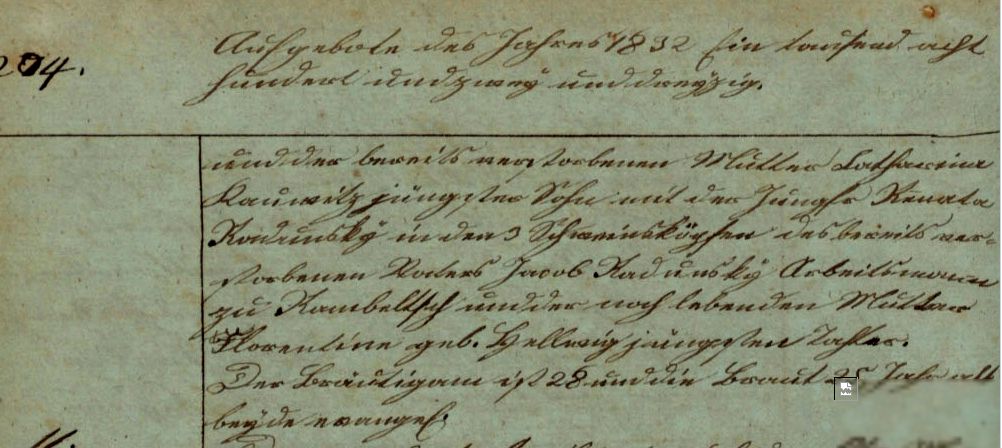 204.
Aufgebote des Jahres 1832 Ein tausend acht
hundert und zwey und dreyzig.
und der bereits verstorbenen Mutter Catharina
Kauwitz jüngster Sohn mit der Jungfr Renata
Radunsky in den 3 Schweinsköpfen des bereits ver-
storbenen Vaters Jacob Radunsky Arbeitsmann
zu Rambeltsch und der noch lebenden Mutter
Florentine geb. Hellwig jüngsten Tochter.
Der Bräutigam ist 28 und die Braut Jahr alt
beyde evangel.